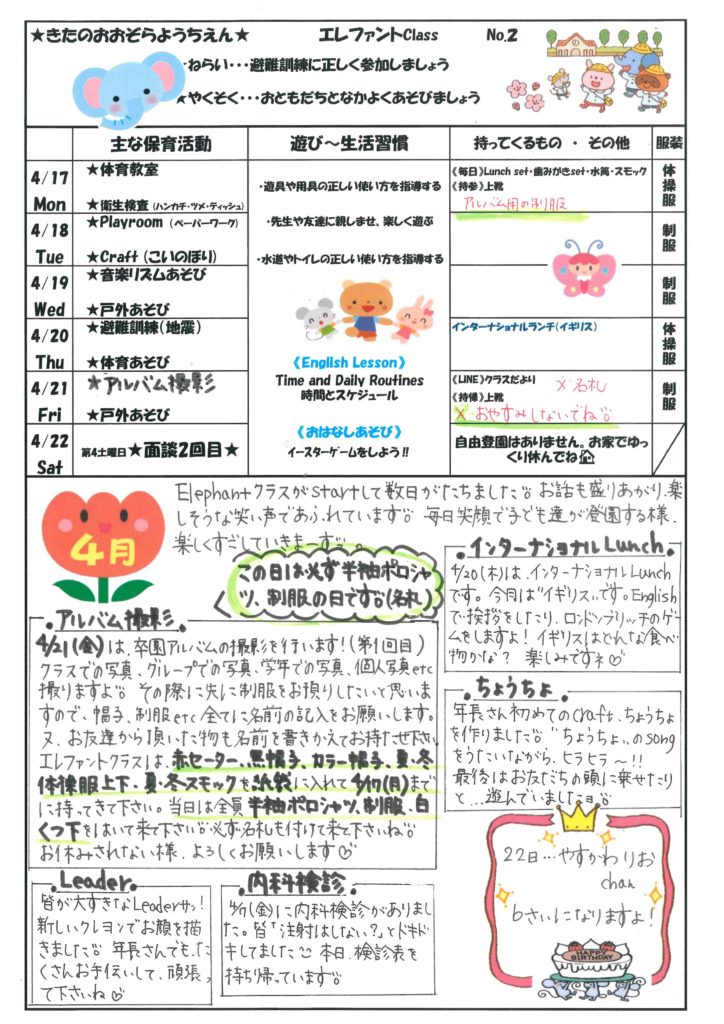 ★きたのおおぞらようちえん★ エレファントClass No.2
・ねらい・・・避難訓練に正しく参加しましょう
★やくそく・・・おともだちとなかよくあそびましょう
主な保育活動 遊び～生活習慣 持ってくるもの ・ その他 服装
4/17
Mon
★体育教室
★衛生検査（ハンカチ・ツメ・ティッシュ）
4/18
Tue
★Playroom （ペーパーワーク）
★Craft（こいのぼり）
4/19
Wed
★音楽リズムあそび
★戸外あそび
4/20
Thu
★避難訓練（地震）
★体育あそび
4/21
Fri
★アルバム撮影
★戸外あそび
4/22
Sat
第4土曜日★面談2回目★
・遊具や用具の正しい使い方を指導する
・先生や友達に親しませ、楽しく遊ぶ
・水道やトイレの正しい使い方を指導する
《English Lesson》
Time and Daily Routines
時間とスケジュール
《おはなしあそび》
イースターゲームをしよう!!
《毎日》Lunch set・歯みがきset・水筒・スモック
《持参》上靴
アルバム用の制服
インターナショナルランチ（イギリス）
《LINE》クラスだより
※名札
《持帰》上靴
※おやすみしないでね
自由登園はありません。お家でゆっ
くり休んでね
体操服
制服
制服
体操服
制服
4月
Elephantクラスがstartして数日がたちました。お話も盛りあがり、楽
しそうな笑い声であふれています。毎日笑顔で子ども達が登園する様、
楽しくすごしていきまーす。
この日は必ず半袖ポロシャ
ツ、制服の日です。（名札）
アルバム撮影
4/21(金)は、卒園アルバムの撮影を行います!（第1回目）
クラスでの写真、グループでの写真、学年での写真、個人写真etc
撮りますよ。その際に先に制服をお預りしたいと思いま
すので、帽子、制服etc全てに名前の記入をお願いします。
又、お友達から頂いた物も名前を書きかえてお持たせ下さい。
エレファントクラスは、赤セーター、黒帽子、カラー帽子、夏・冬
体操服上下、夏・冬スモックを紙袋に入れて4/17(月)まで
に持ってきて下さい。当日は全員半袖ポロシャツ、制服、白
くつ下をはいて来て下さい。必ず名札も付けて来て下さいね。
お休みされない様、よろしくお願いします♡
インターナショナルLunch
4/20(木)は、インターナショナルLunch
です。今月は"イギリス"です。English
で挨拶をしたり、ロンドンブリッヂのゲー
ムをしますよ! イギリスはどんな食べ
物かな? 楽しみですネ♡
ちょうちょ
年長さん初めてのcraft、ちょうちょ
を作りました。"ちょうちょ"のsong
をうたいながら、ヒラヒラ～!!
最後はお友だちの頭に乗せたり
と…遊んでいましたョ。
Leader
皆が大すきなLeaderサン!
新しいクレヨンでお顔を描
きました。年長さんでも、た
くさんお手伝いして、頑張っ
て下さいね♡
内科検診
4/7(金)に内科検診がありまし
た。皆「注射はしない?」とドキド
キしてました 本日、検診表を
持ち帰っています。
22日…やすかわ りお
chan
6さいになりますよ!
HAPPY
BIRTHDAY